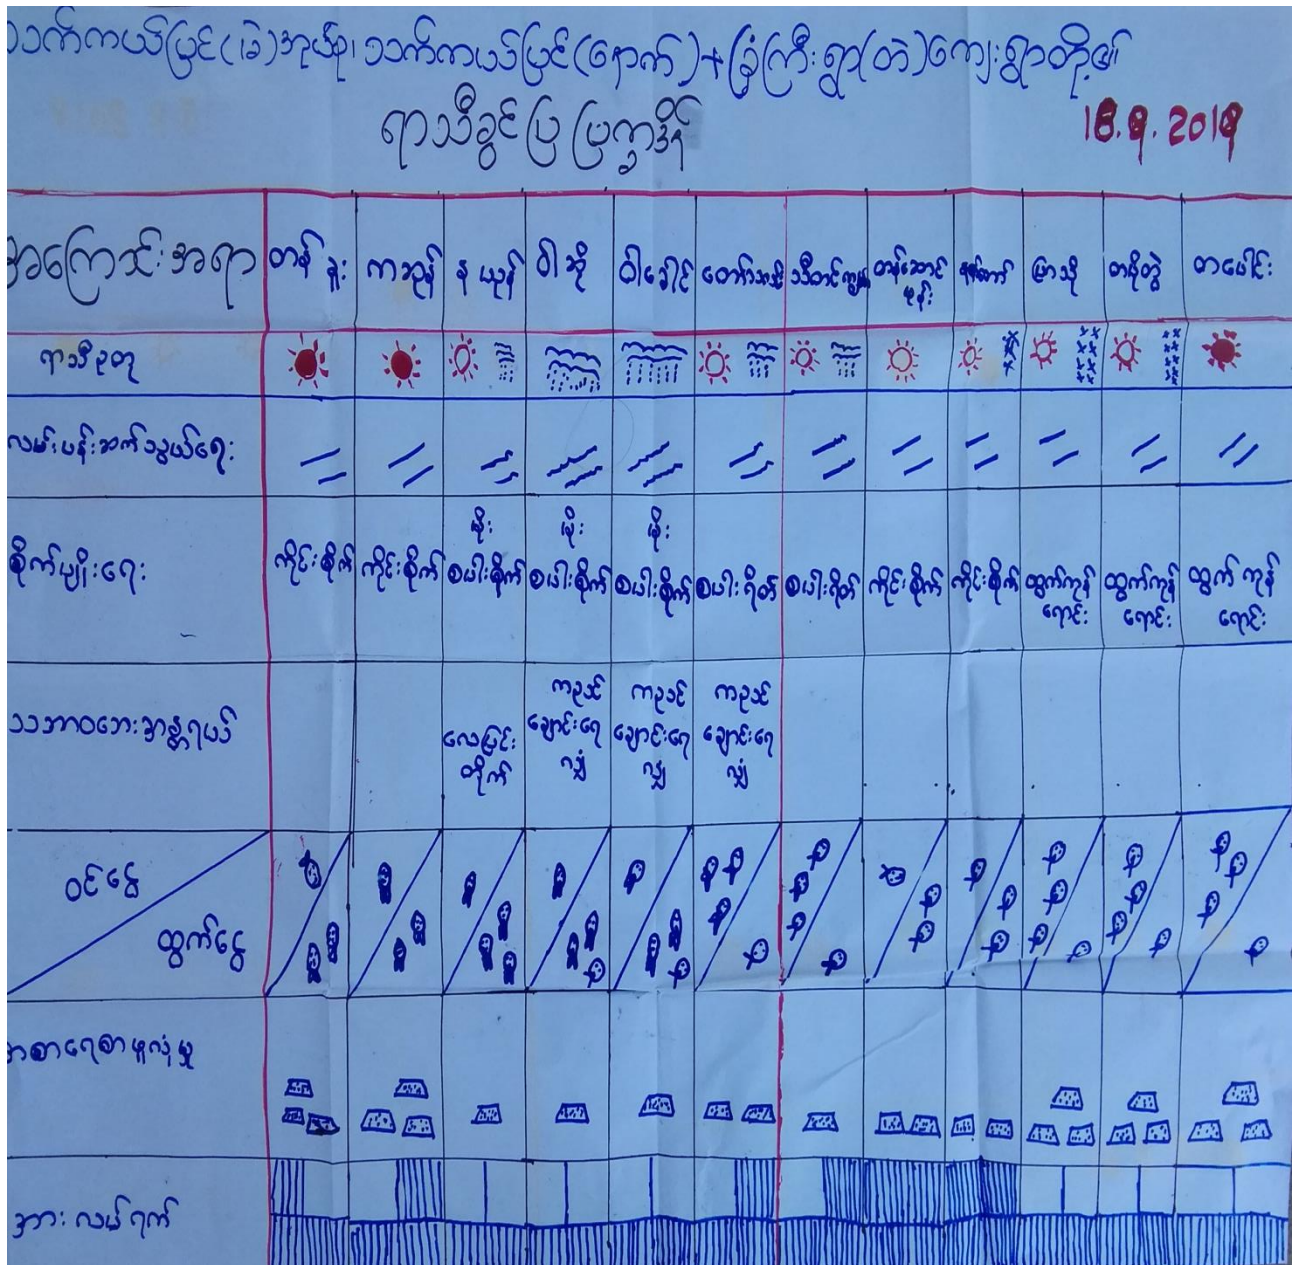 သက်ကယ်ပြင်(မဲ)အုပ်စု၊ သက်ကယ်ပြင်(နောက်)+ခြံကြီးရွာ(တဲ)ကျေးရွာတို့၏
ရာသီခွင်ပြ ပြက္ခဒိန်
18.9.2019
အကြောင်းအရာ တန်ခူး ကဆုန် နယုန် ဝါဆို ဝါခေါင် တော်သလင်း သီတင်းကျွတ် တန်ဆောင်မုန်း နတ်တော် ပြာသို တပို့တွဲ တပေါင်း
ရာသီဥတု
လမ်းပန်းဆက်သွယ်ရေး
စိုက်ပျိုးရေး ကိုင်းစိုက် ကိုင်းစိုက် မိုးစပါးစိုက် မိုးစပါးစိုက် မိုးစပါးစိုက် စပါးရိတ် စပါးရိတ် ကိုင်းစိုက် ကိုင်းစိုက် ထွက်ကုန်ရောင်း ထွက်ကုန်ရောင်း ထွက်ကုန်ရောင်း
သဘာဝဘေးအန္တရာယ် လေပြင်းတိုက် ချောင်းရေလျှံ ချောင်းရေလျှံ ချောင်းရေလျှံ
ဝင်ငွေ
ထွက်ငွေ
အစားရေစာဖူလုံမှု
အားလပ်ရက်